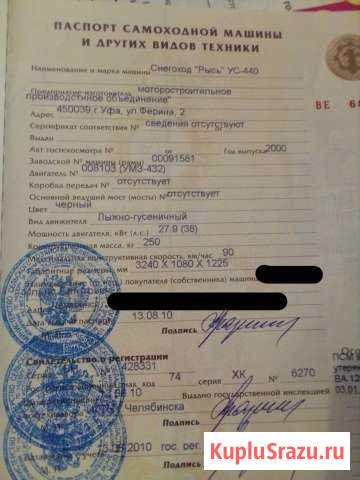 ПАСПОРТ САМОХОДНОЙ МАШИНЫ
И ДРУГИХ ВИДОВ ТЕХНИКИ
Наименование и марка машины Снегоход "Рысь" УС-440
Предприятие-изготовитель моторостроительное
производственное объединение"
Адрес 450039,г.Уфа, ул.Ферина, 2
ВЕ
Сертификат соответствия № сведения отсутствуют
Выдан
Акт гостехосмотра № от Год выпуска 2000
Заводской № машины (рамы) 00091581
Двигатель № 008103 (УМЗ-432)
Коробка передач № отсутствует
Основной ведущий мост (мосты) № отсутствует
Цвет черный
Вид движителя Лыжно-гусеничный
Мощность двигателя, кВт (л.с.) 27.9 (38)
Конструкционная масса, кг 250
Максимальная конструктивная скорость, км/час 90
Габаритные размеры, мм 3240 X 1080 X 1225
покупателя (собственника) машины
13.08.10
Подпись
Свидетельство о регистрации
Серия 428331
код 74 серия ХК № 6270
08.10 Выдано государственной инспекцией
Челябинска
Подпись
2010 гос. рег.
ВА 12
03.01.
Подпись
KupluSrazu.ru